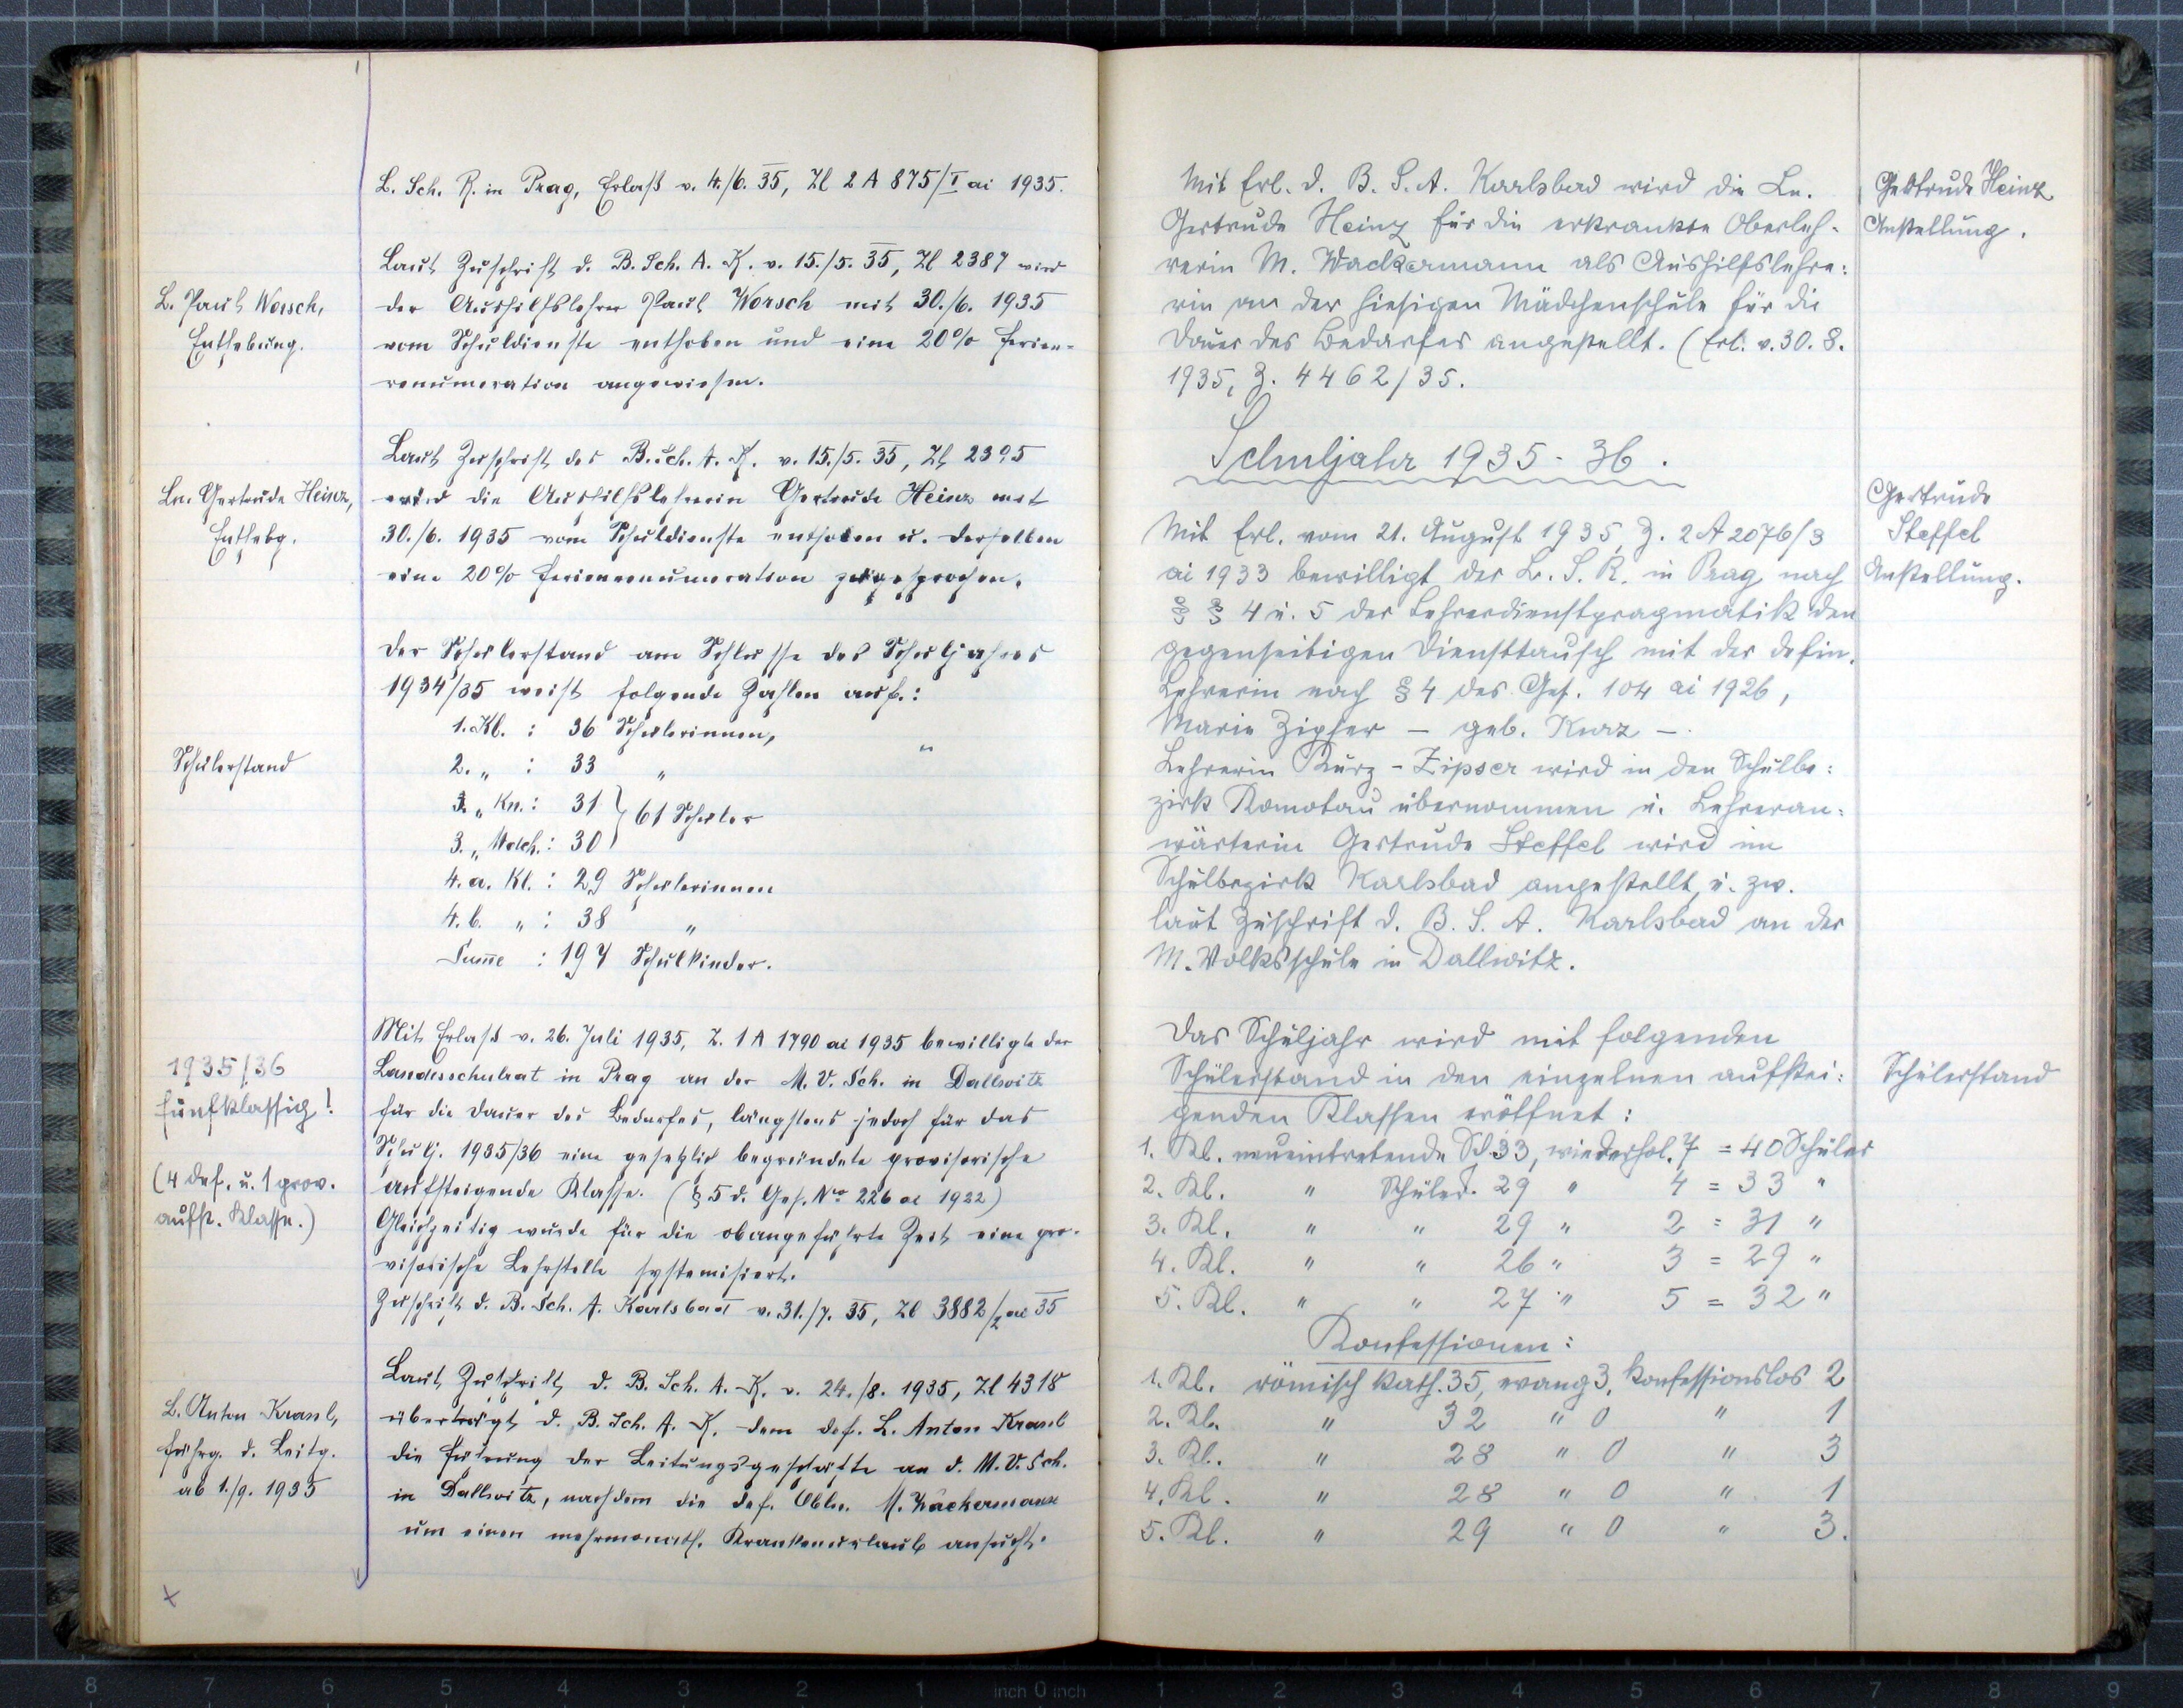 L. Sch. R. in Prag, Erlaß v. 4./6. 35, Zl 2 A 875/I ai 1935.
Laut Zuschrift d. B. Sch. A. K. v. 15./5. 35, Zl 2387 wird
L. Paul Worsch,
der Aushilfslehrer Paul Worsch mit 30./6. 1935
Enthebung.
vom Schuldienste enthoben und eine 20% Ferien-
renumeration angewiesen.
Laut Zuschrift des B. Sch. A. K. v. 15./5. 35, Zl 2395
Ln. Gertrude Heinz,
wird die Aushilfslehrerin Gertrude Heinz mit
Enthebg.
30./6. 1935 vom Schuldienste enthoben u. derselben
eine 20% Ferienrenumeration zugesprochen.
Der Schülerstand am Schlusse des Schuljahres
1934/35 weist folgende Zahlen auf.:
1. Kl. : 36 Schülerinnen,
Schülerstand
2. „ : 33 „
3. „ Kn. : 31 } 61 Schüler
3. „ Mdch. : 30
4. a. Kl. : 29 Schülerinnen
4. b. „ : 38 „
Sum̅e : 197 Schulkinder.
Mit Erlaß v. 26. Juli 1935, Z. 1 A 1790 ai 1935 bewilligte der
1935/36
Landesschulrat in Prag an der M. V. Sch. in Dallwitz
fünfklassig!
für die Dauer des Bedarfes, längstens jedoch für das
Schulj. 1935/36 eine gesetzlich begründete provisorische
(4 def. u. 1 prov.
aufst. Klasse.)
aufsteigende Klasse. (§ 5 d. Ges. No 226 ai 1922)
Gleichzeitig wurde für die obangeführte Zeit eine pro-
visorische Lehrstelle systemisiert.
Zuschrift d. B. Sch. A. Karlsbad v. 31./7. 35, Zl 3882/2 ai 35
Laut Zuschrift d. B. Sch. A. K. v. 24./8. 1935, Zl 4318
L. Anton Krasl,
überträgt d. B. Sch. A. K. dem def. L. Anton Krasl
Führg. d. Leitg.
die Führung der Leitungsgeschäfte an d. M. V. Sch.
ab 1./9. 1935
in Dallwitz, nachdem die def. Obln. M. Wackermann
um einen mehrmonatl. Krankenurlaub ansucht.
Mit Erl. d. B. S. A. Karlsbad wird die Ln.
Gertrude Heinz
Gertrude Heinz für die erkrankte Oberleh-
Anstellung.
rerin M. Wackermann als Aushilfslehre:
rin an der hiesigen Mädchenschule für die
Dauer des Bedarfes angestellt. (Erl. v. 30. 8.
1935, Z. 4462/35.
Schuljahr 1935-36.
Gertrude
Mit Erl. vom 21. August 1935, Z. 2 A 2076/3
Steffel
ai 1933 bewilligt der L. S. R. in Prag nach
Anstellung.
§ § 4 u. 5 der Lehrerdienstpragmatik den
gegenseitigen Diensttausch mit der defin.
Lehrerin nach § 4 des Ges. 104 ai 1926,
Marie Zipser – geb. Kurz –.
Lehrerin Kurz-Zipser wird in den Schulbe:
zirk Komotau übernommen u. Lehreran:
wärterin Gertrude Steffel wird im
Schulbezirk Karlsbad angestellt, u. zw.
laut Zuschrift d. B. S. A. Karlsbad an der
M. Volksschule in Dallwitz.
Das Schuljahr wird mit folgenden
Schülerstand in den einzelnen aufstei:
Schülerstand
genden Klassen eröffnet:
1. Kl. neueintretende Sch. 33, wiederhol. 7 = 40 Schüler
2. Kl. " Schüler. 29 " 4 = 33 "
3. Kl. " " 29 " 2 = 31 "
4. Kl. " " 26 " 3 = 29 "
5. Kl. " " 27 " 5 = 32 "
Konfessionen:
1. Kl. römisch kath. 35, evang 3, konfessionslos 2
2. Kl. " 32 " 0 " 1
3. Kl. " 28 " 0 " 3
4. Kl. " 28 " 0 " 1
5. Kl. " 29 " 0 " 3.
8 7 6 5 4 3 2 1 inch 0 inch 1 2 3 4 5 6 7 8 9